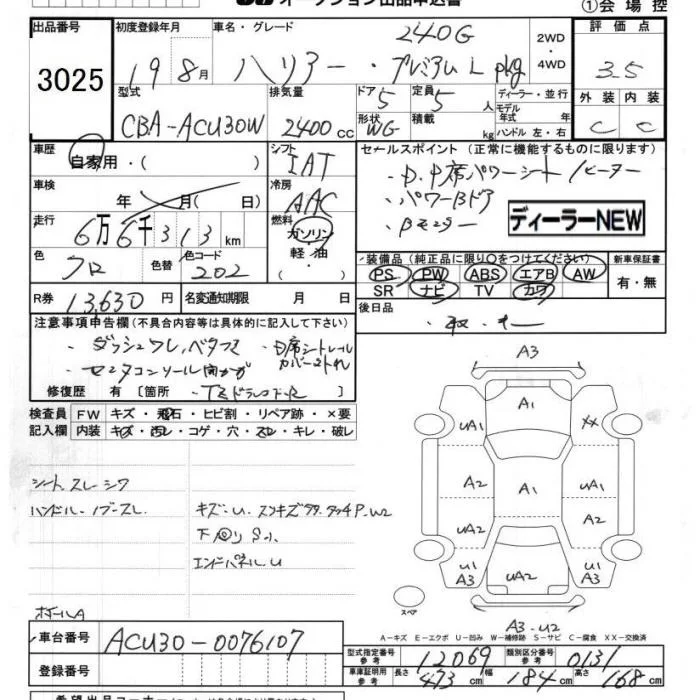 オークション出品申込書
①会場控
出品番号 初度登録年月 車名・グレード 240G 2WD 評価点
3025 19 8月 ハリアー・プレミアム L pkg ・4WD 3.5
型式 排気量 ドア 5 定員 5人 ディーラー・並行 外装 内装
CBA-ACU30W 2400cc 形状 WG 積載 kg モデル年式 年式 ハンドル 左・右 C C
車歴 自家用・( ) シフト IAT セールスポイント (正常に機能するものに限ります)
車検 年 月( 日) 冷房 AAC ・D.P席パワーシート/ヒーター
・パワーBドア
走行 6万6千313km 燃料 ガソリン・軽油・( ) ・Bモニター ディーラーNEW
色 クロ 色替 色コード 202 装備品 (純正品に限り○をつけてください) 新車保証書
PS PW ABS エアB AW 有・無
SR ナビ TV カワ
R券 13,630円 名変通知期限 月 日 後日品
・取・キー
注意事項申告欄 (不具合内容等は具体的に記入して下さい)
・ダッシュワレ,ベタツキ
・センタコンソール
修復歴 有 [箇所
検査員 FW キズ・飛石・ヒビ割・リペア跡・×要
記入欄 内装 キズ・汚レ・コゲ・穴・スレ・キレ・破レ
シート.スレ-シワ
ハンドル-ノブ-スレ
キズ-U. スリキズ タッチP-W2
下回りS小
エンドパネルU
ホイールA
A3
A1
UA2 XX
A2 A1 UA2
UA2 A2
U1 A3 UA2 U1 A3
スペア
A3-U2
A-キズ E-エクボ U-凹み W-補修跡 S-サビ C-腐食 XX-交換済
車台番号 ACU30-0076107
登録番号
型式指定番号 参考 12069 類別区分番号 参考 0131
車庫証明用 参考 長さ 473cm 幅 184cm 高さ 168cm